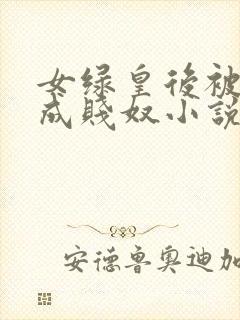 女绿皇後被
成賤奴小說
安德鲁奥迪加